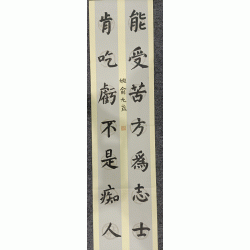 能受苦方為志士
肯吃虧不是痴人